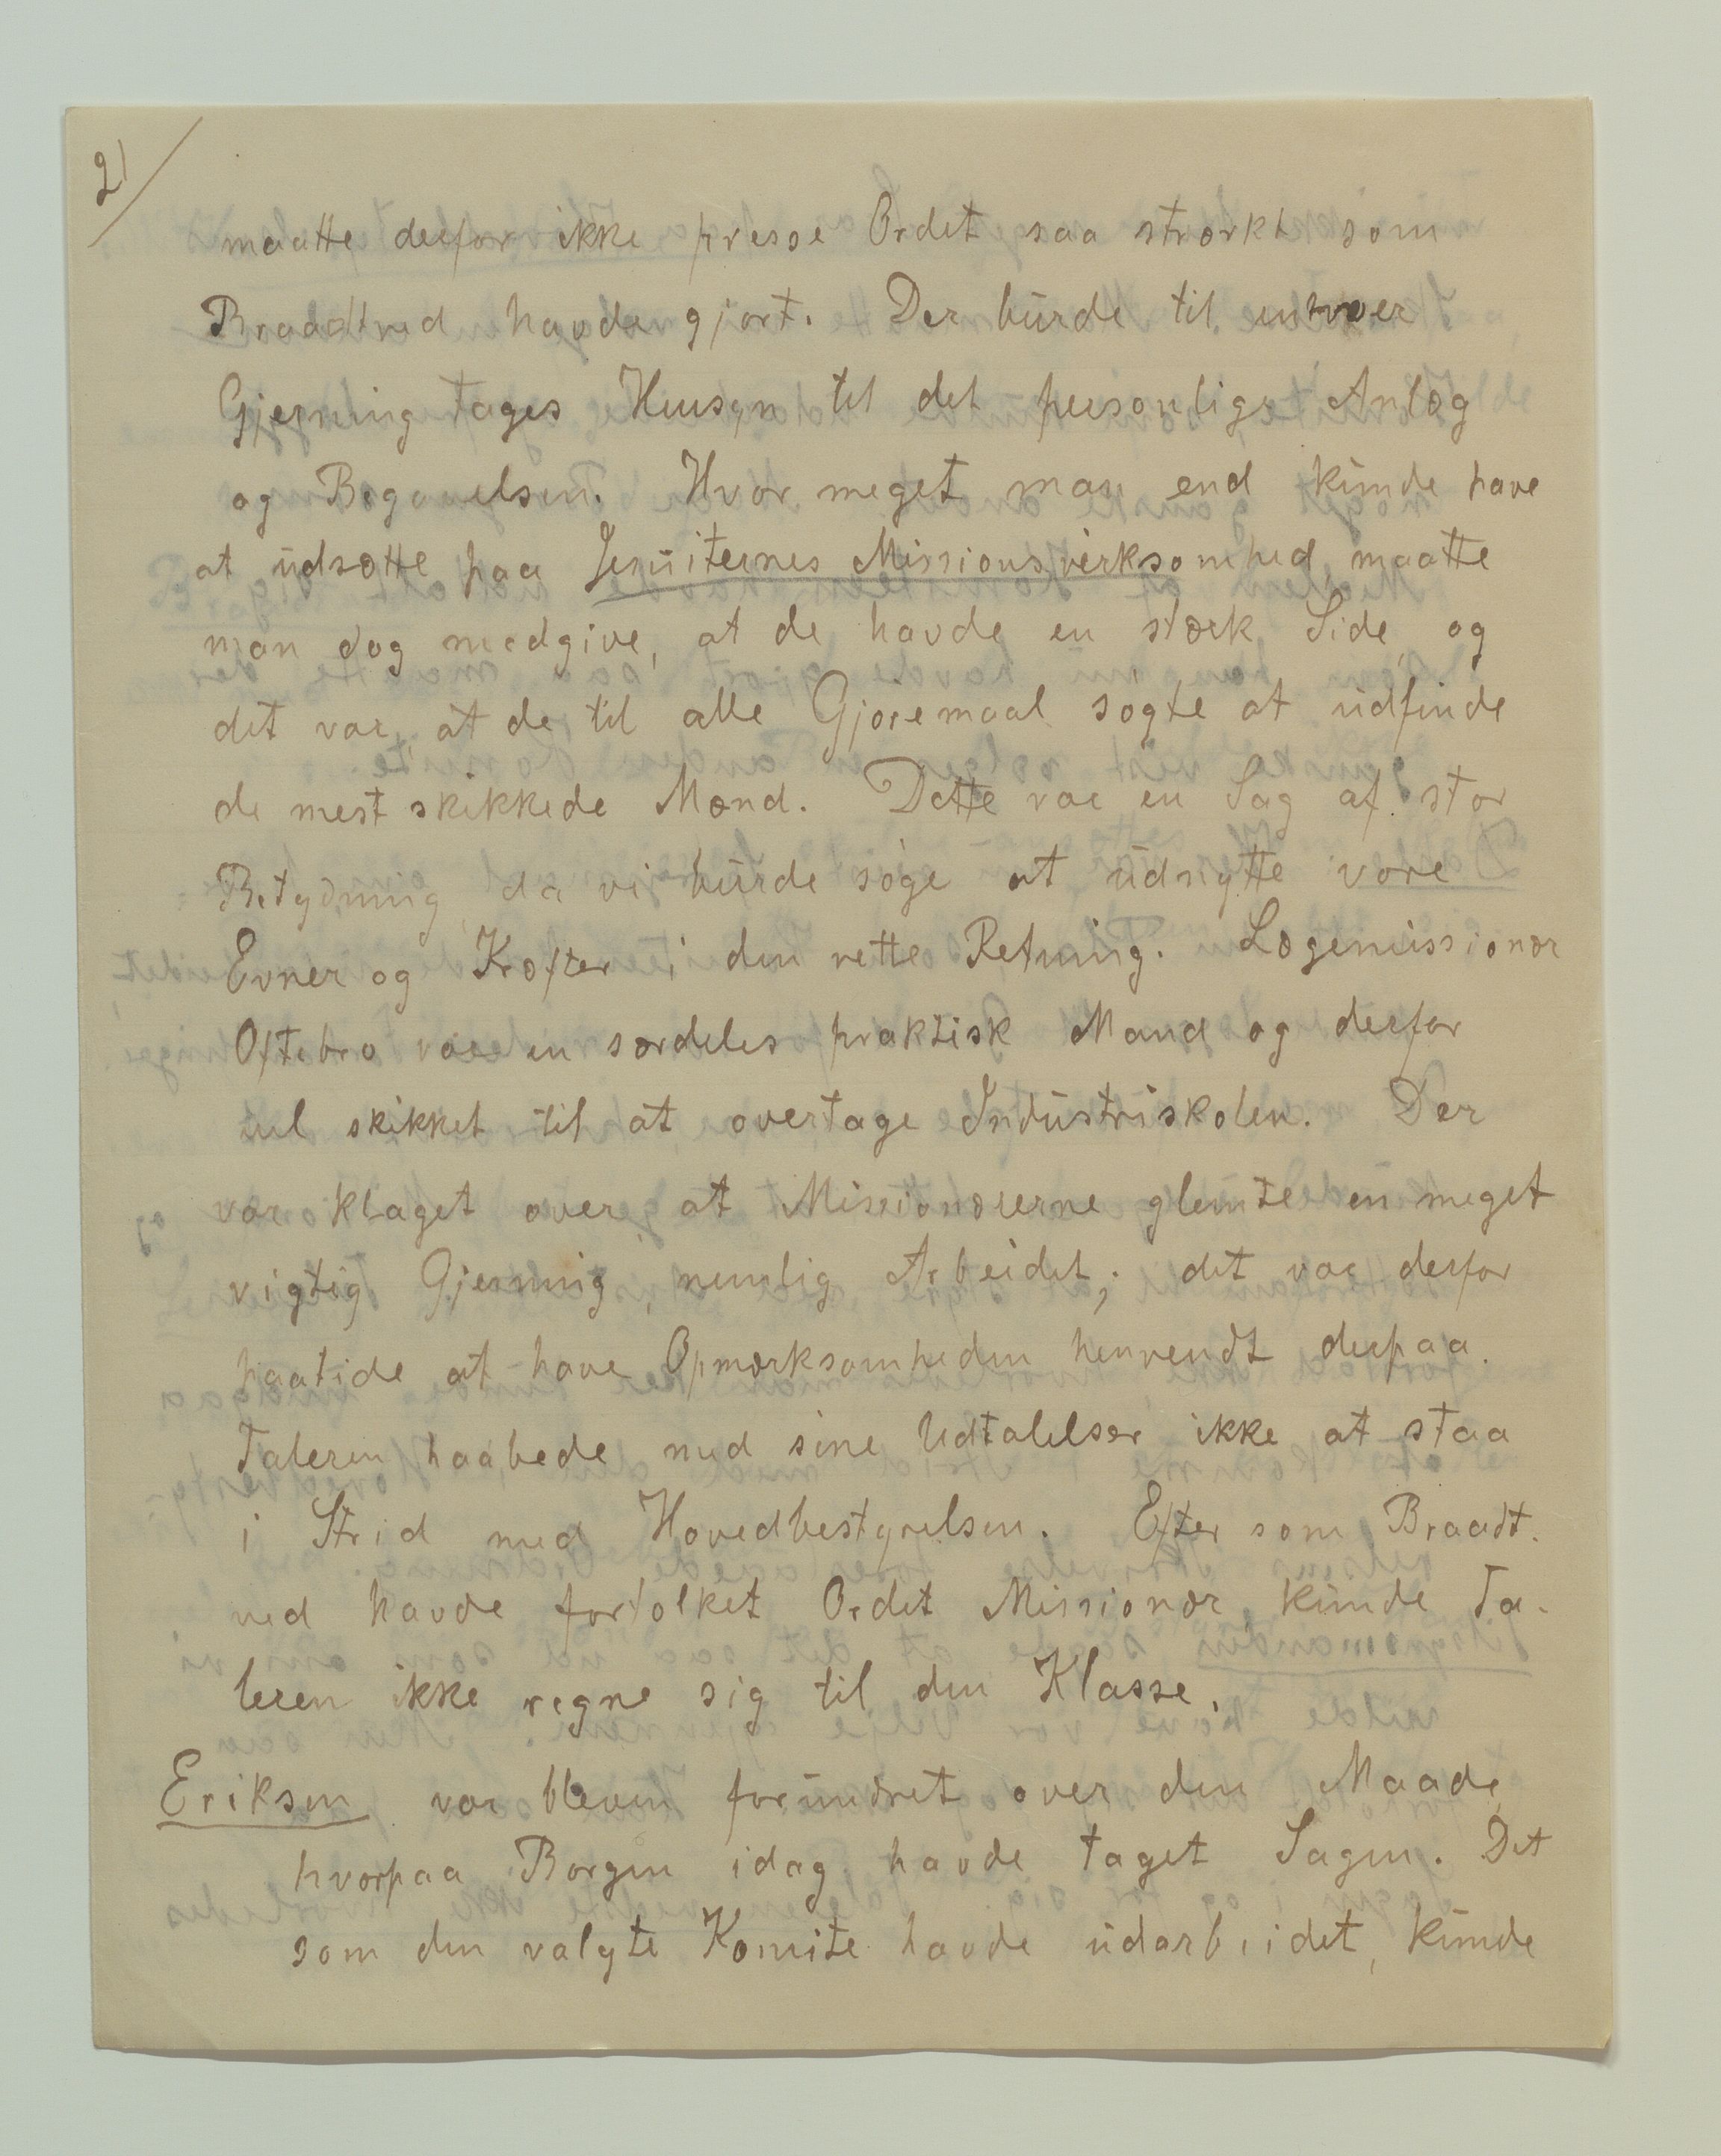 21
maatte derfor ikke presse Ordet saa stærkt som
Braadtved havde gjort. Der burde til enhver
Gjerning tages Hensyn til det personlige Anlæg
og Begavelsen. Hvor meget man end kunde have
at udsætte paa Jesuiternes Missionsvirksomhed, maatte
man dog medgive, at de havde en stærk Side, og
det var, at de til alle Gjøremaal søgte at udfinde
de mest skikkede Mænd. Dette var en Sag af stor
Betydning, da vi burde søge at udnytte vore
Evner og Kræfter i den rette Retning. Lægemissionær
Oftebro var en særdeles praktisk Mand og derfor
vel skikket til at overtage Industriskolen. Der
var klaget over, at Missionærerne glemte en meget
vigtig Gjerning, nemlig Arbeidet; det var derfor
paatide at have Opmærksomheden henvendt derpaa.
Taleren haabede med sine Udtalelser ikke at staa
i Strid med Hovedbestyrelsen. Efter som Braadt-
ved havde fortolket Ordet Missionær, kunde Ta-
leren ikke regne sig til den Klasse.
Eriksen var bleven forundret over den Maade,
hvorpaa Borgen idag havde taget Sagen. Det
som den valgte Komite havde udarbeidet, kunde